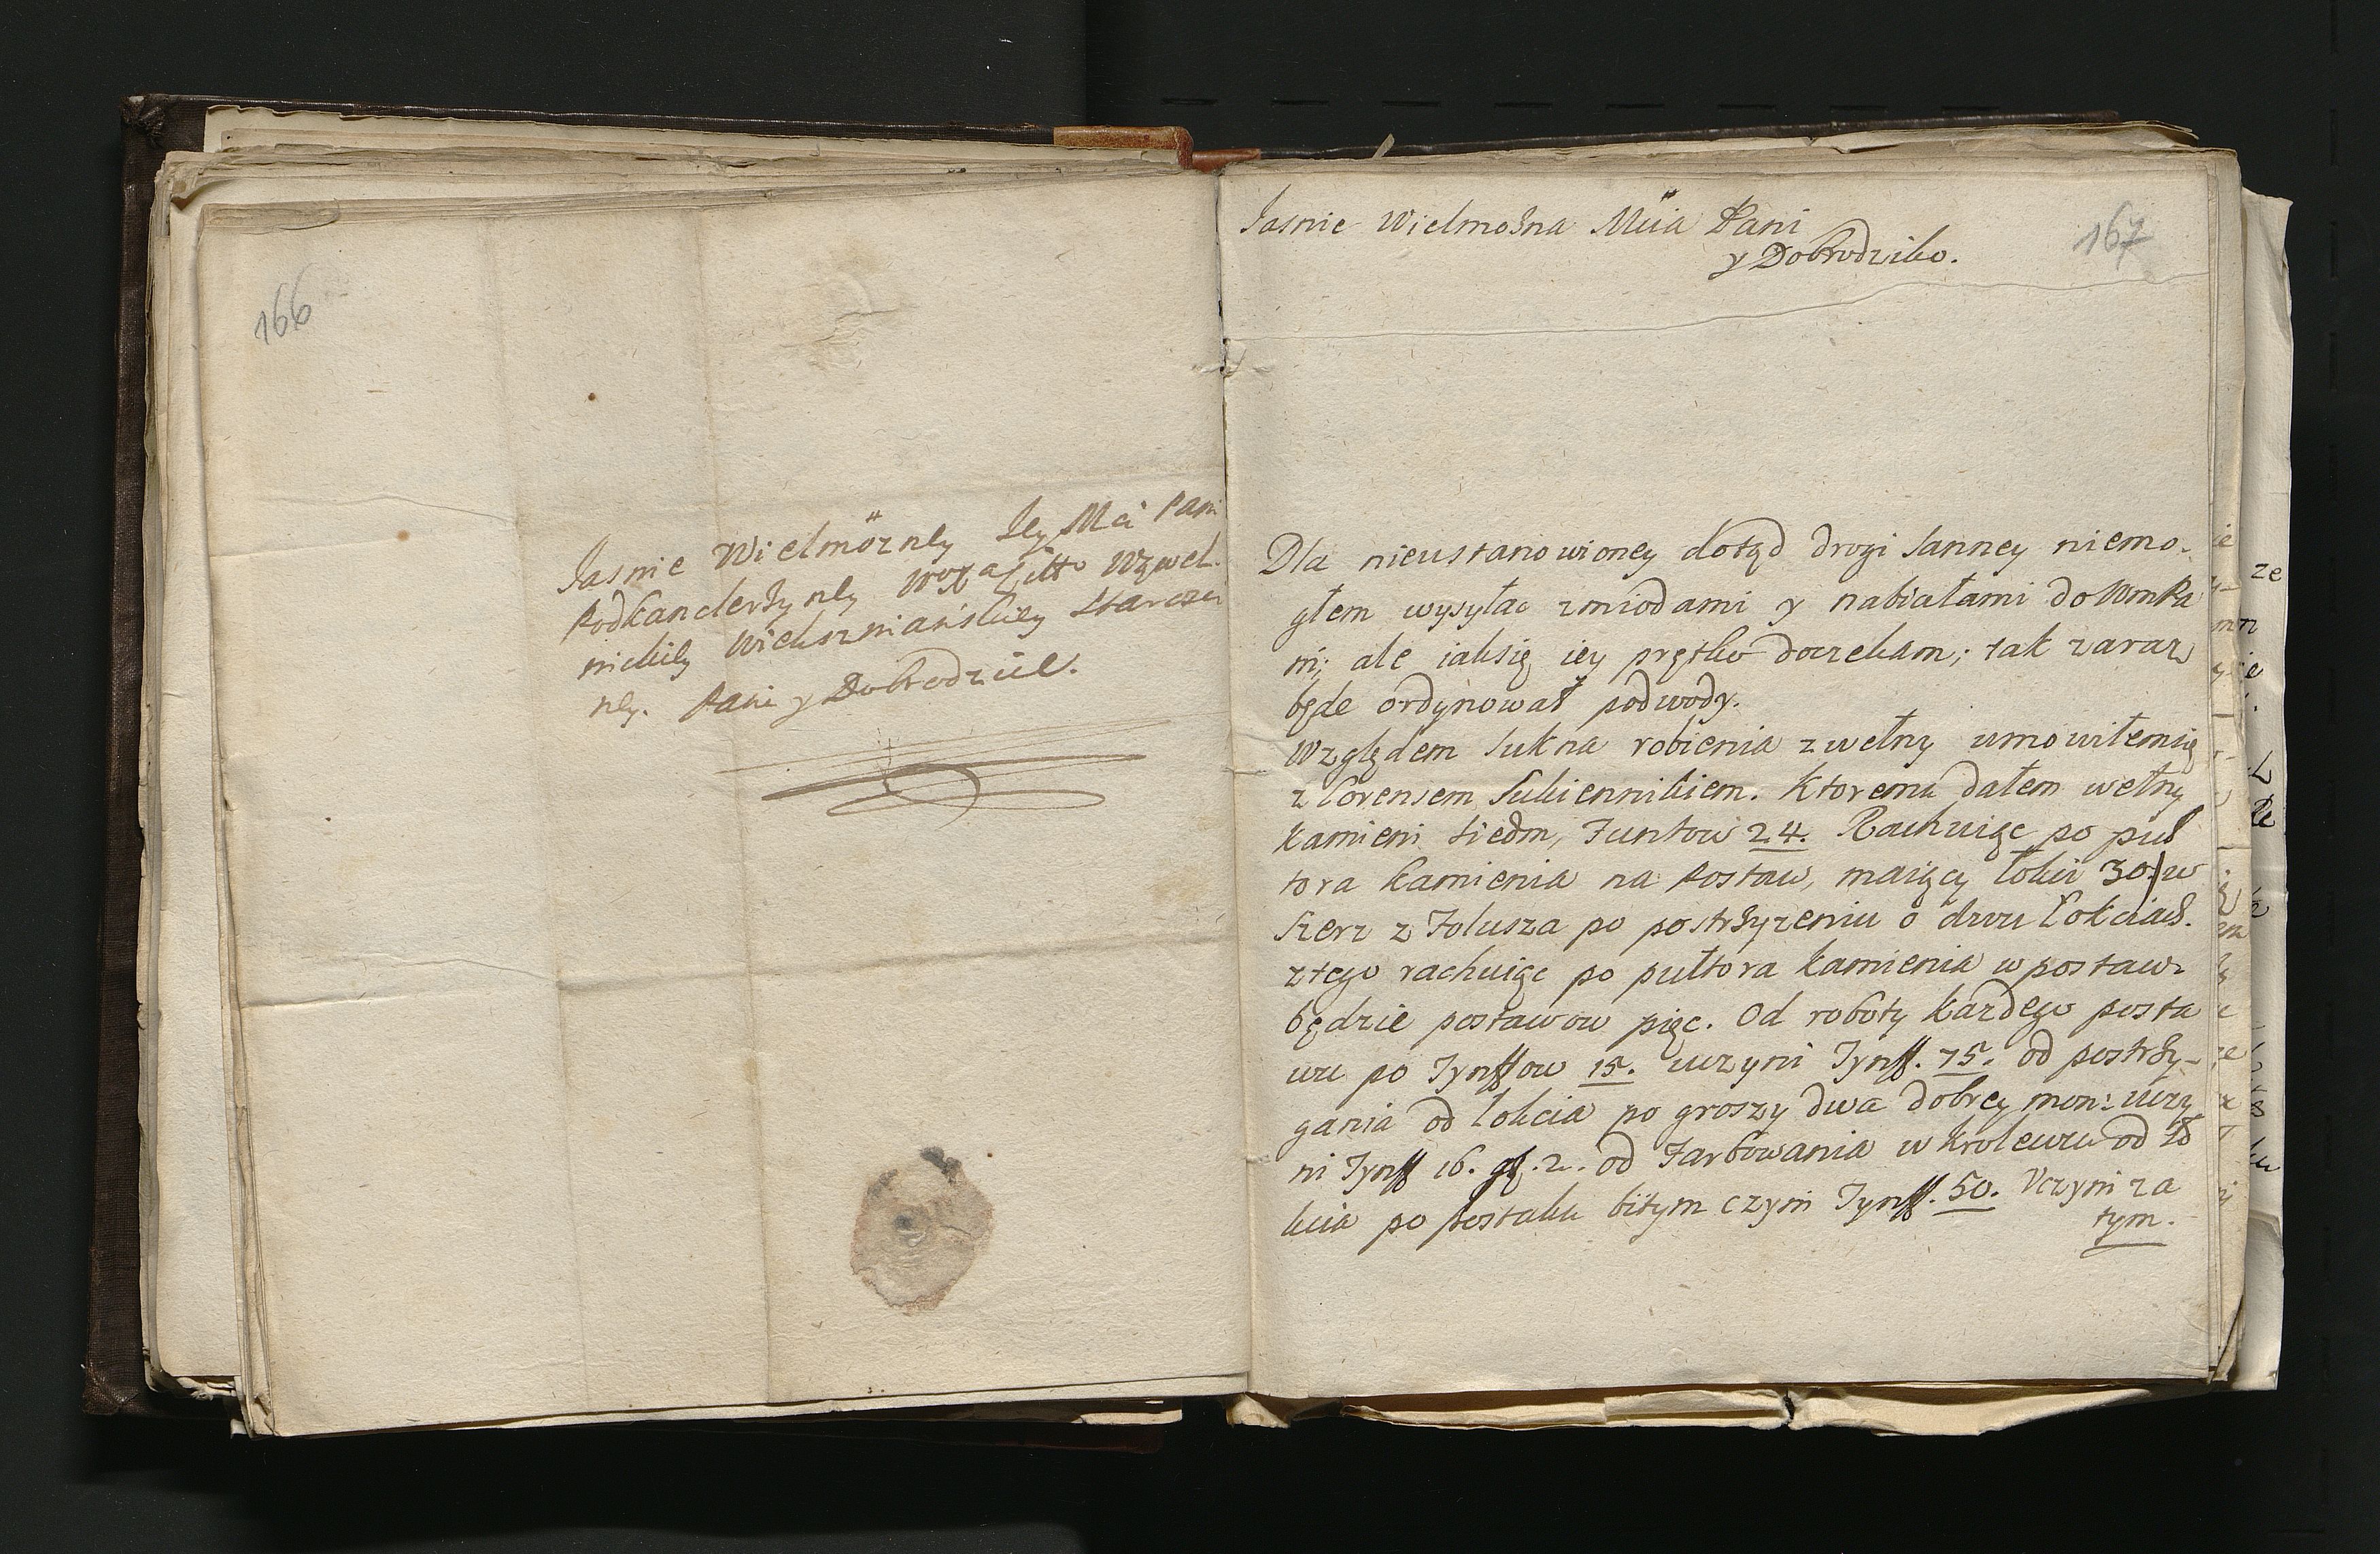 166
Jasnie Wielmożney Jey Mci Pani
Podkanclerzyney Litto Wzwol
nickiey Wiekszniańskiey Starości
ney. Pani y Dobrodziice.
167
Jasnie Wielmożna Mcia Pani
y Dobrodziko.
Dla nieustanowioney dotąd drogi sanney niemo-
głem wysyłac zmiodami y nabiałami do WmPa
ni; ale iaksię iey prętko doczekam; tak zaraz
będe ordynował podwody.
Względem sukna robienia zwełny umowiłemsię
z Lorensem Sukiennikiem. Ktoremu dałem wełny
kamieni siedm, Funtow 24. Rachuiąc po puł
tora kamienia na Postaw, maiący łokci 30. w
szerz z Folusza po postrzyżeniu o dwu Łokciach.
ztego rachuiąc po pułtora kamienia w postaw
będzie postawow pięc. Od roboty każdego posta
wu po Tynffow 15. uczyni Tynff. 75. od postrzy-
gania od łokcia po groszy dwa dobrey mon: uczy
ni Tynff 16. gr. 2. od Farbowania w Krolewcu od Ło
kcia po szostaku bitym czyni Tynff. 50. Uczyni za
tym.